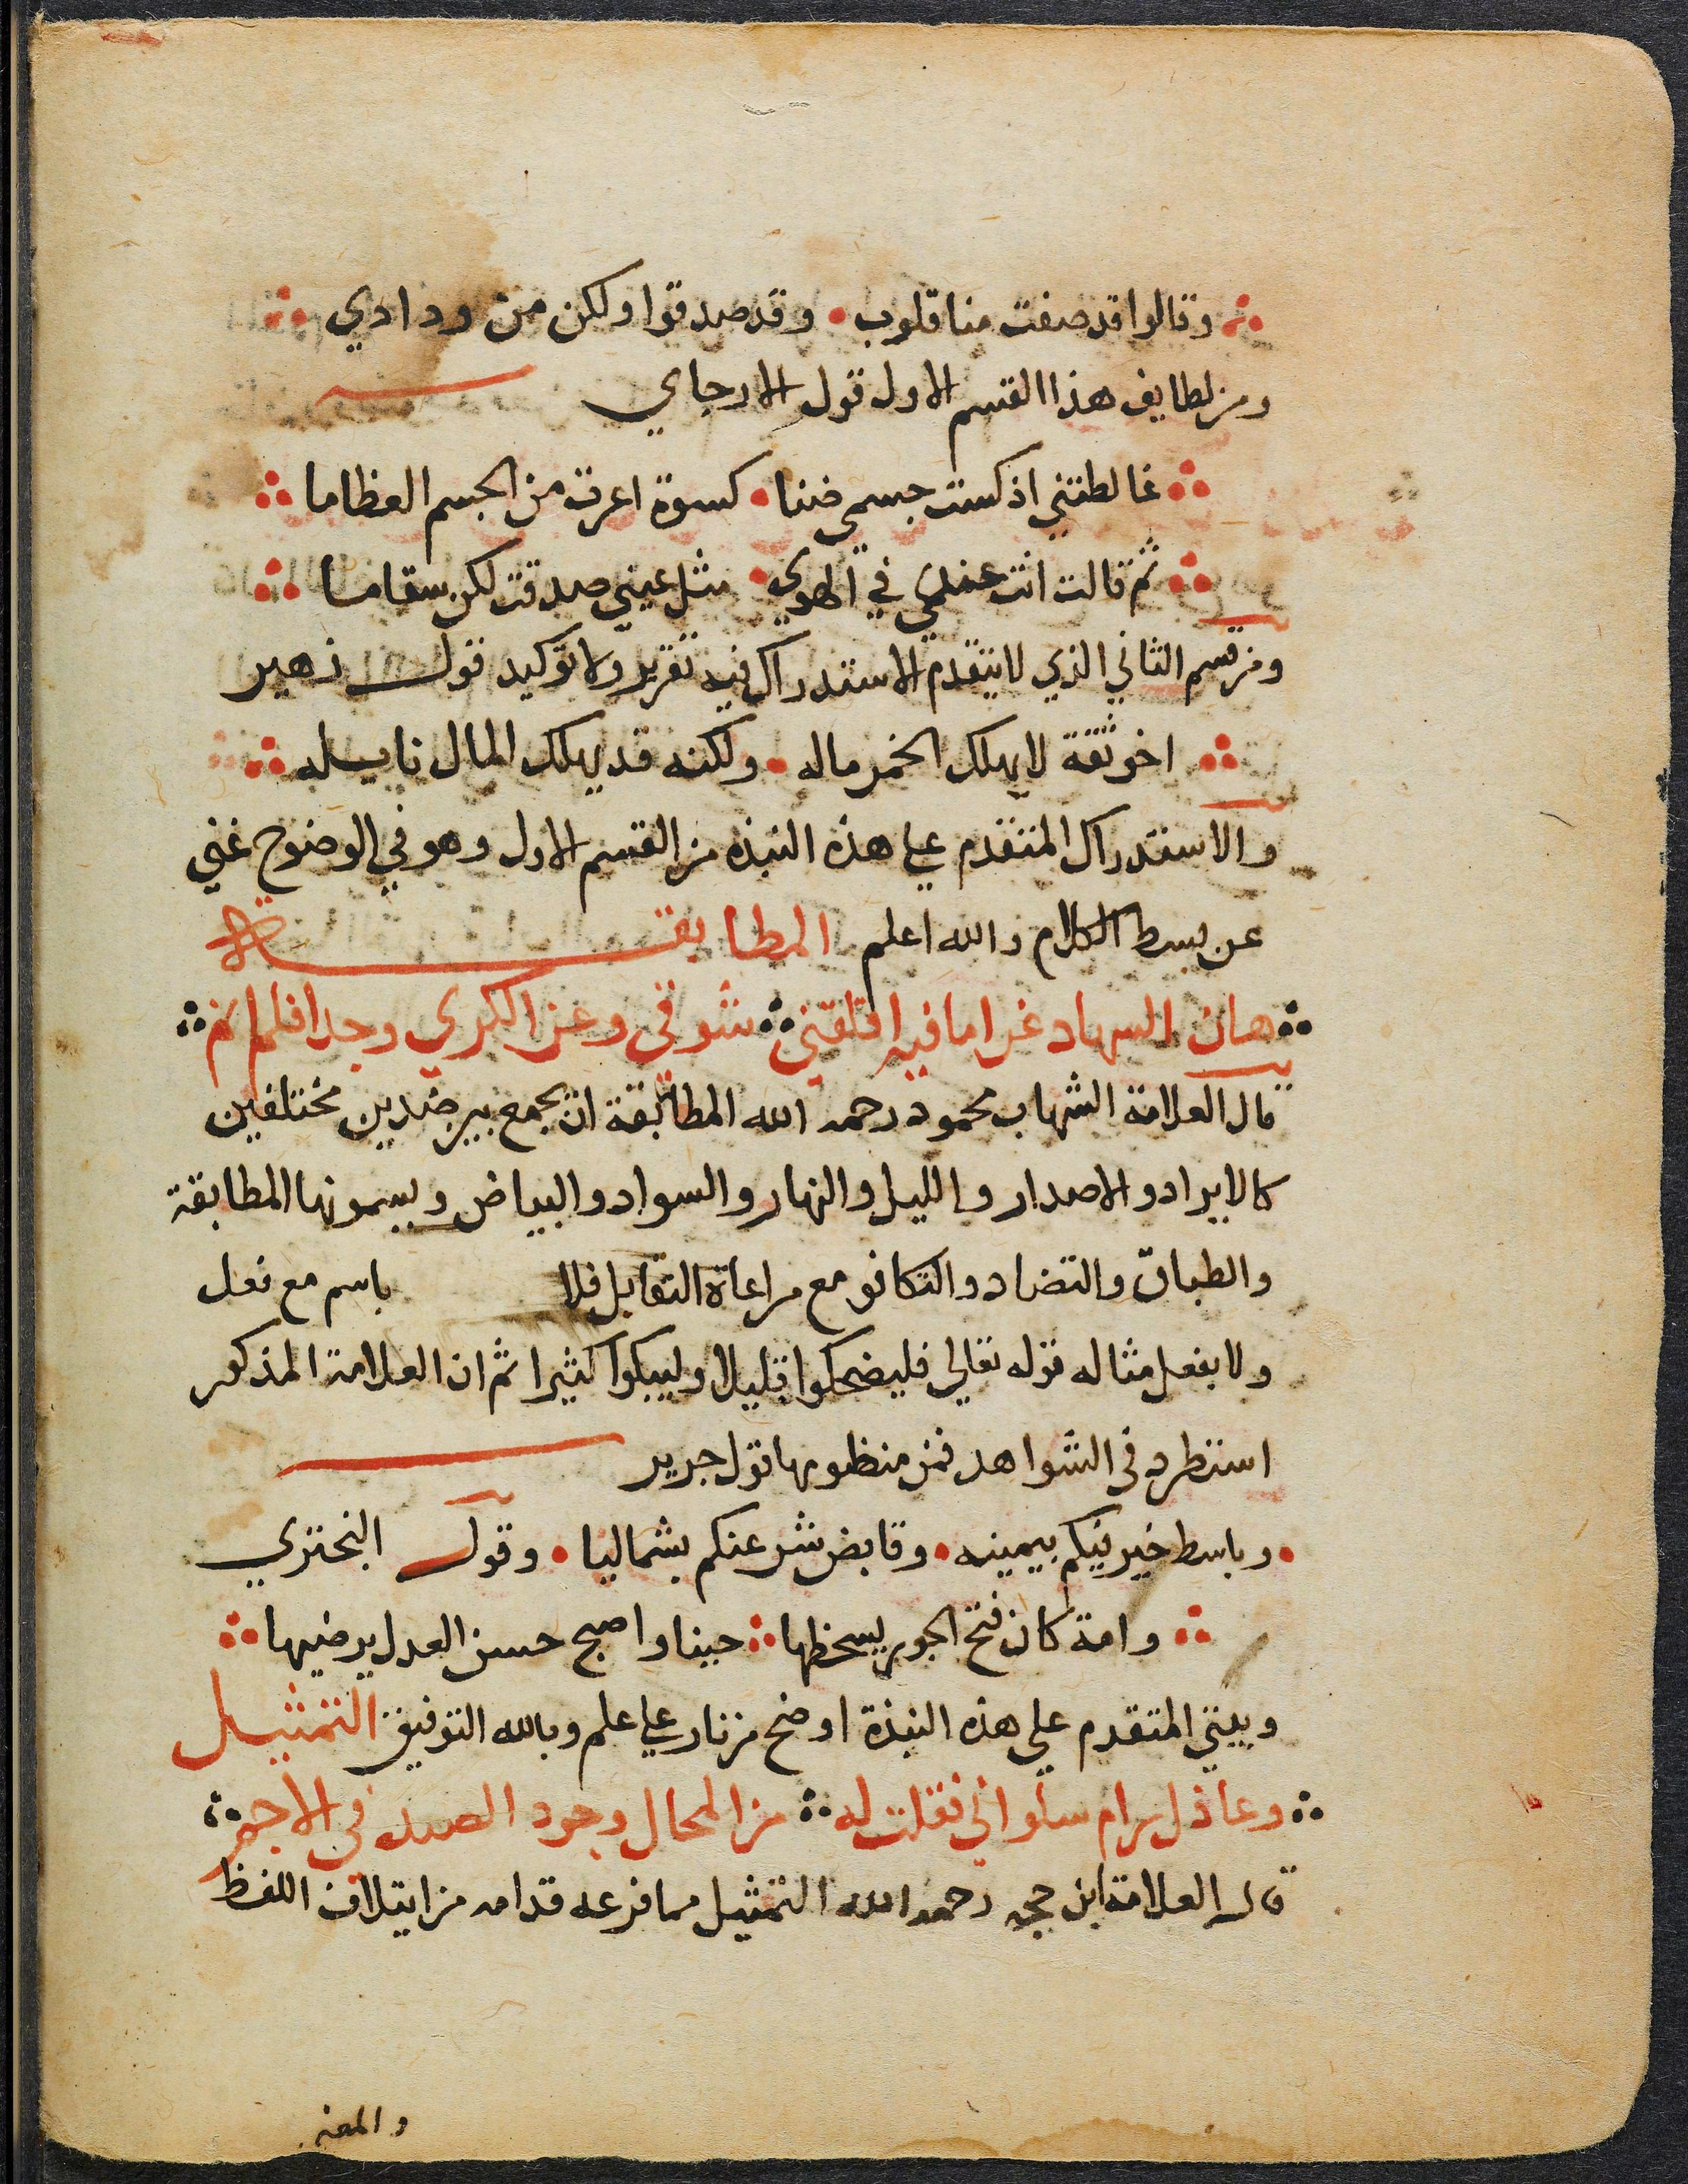 وقالوا قد صفت منا قلوب • وقد صدقوا ولكن من ودادي
ومن لطايف هذا القسم الاول قول الارجاني
غالطتني اذ كست جسمي ضنا • كسوة اعرت من الجسم العظاما
ثم قالت انت عندي في الهوي • مثل عيني صدقت لكن سقاما
ومن قسم الثاني الذي لا يتقدم الاستدراك فيه تقرير ولا توكيد قول زهير
اخو ثقة لا يهلك الخمر ماله • ولكنه قد يهلك المال نايله
والاستدراك المتقدم علي هذه النبذه من القسم الاول وهو في الوضوح غني
عن بسط الكلام والله اعلم المطابقـــة
هان السهاد غراما فيه اقلقني ∴ شوقي وعز الكري وجدا فلم انم
قال العلامة الشهاب محمود رحمه الله المطابقة ان يجمع بين ضدين مختلفين
كالايراد والاصدار والليل والنهار والسواد والبياض ويسمونها المطابقة
والطباق والتضاد والتكافو مع مراعاة التقابل فلا باسم مع فعل
ولا بفعل مثاله قوله تعالي فليضحكوا قليلا وليبكوا كثيرا ثم ان العلامة المذكور
استطرد في الشواهد فمن منظومها قول جرير
• وباسط خير فيكم بيمينه • وقابض شر عنكم بشماليا • وقول البحتري
وامة كان قبح الجور يسخطها ∴ حينا واصبح حسن العدل يرضيها
وبيتي المتقدم علي هذه النبذة اوضح من نار علي علم وبالله التوفيق التمثيـل
وعاذل رام سلواني فقلت له ∴ من المحال وجود الصيد في الاجم
قال العلامة ابن حجه رحمه الله التمثيل مما فرعه قدامه من ايتلاف اللفظ
والمعني